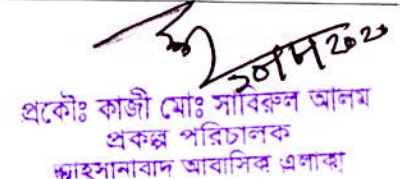 প্রকৌঃ কাজী মোঃ সাবিরুল আলম
প্রকল্প পরিচালক
আহসানাবাদ আবাসিক এলাকা